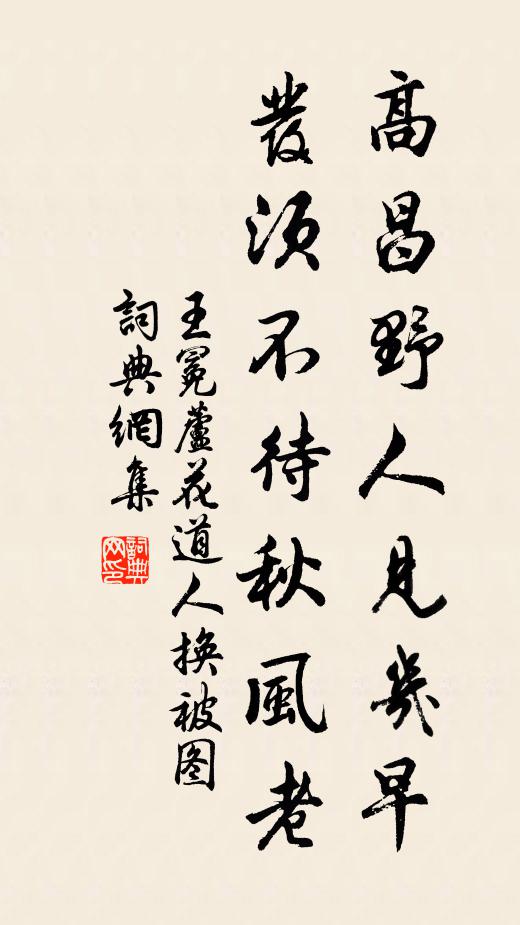 高昌野人見幾早
發須不待秋風老
王冕蘆花道人換被图
詞典網集
詞典网印